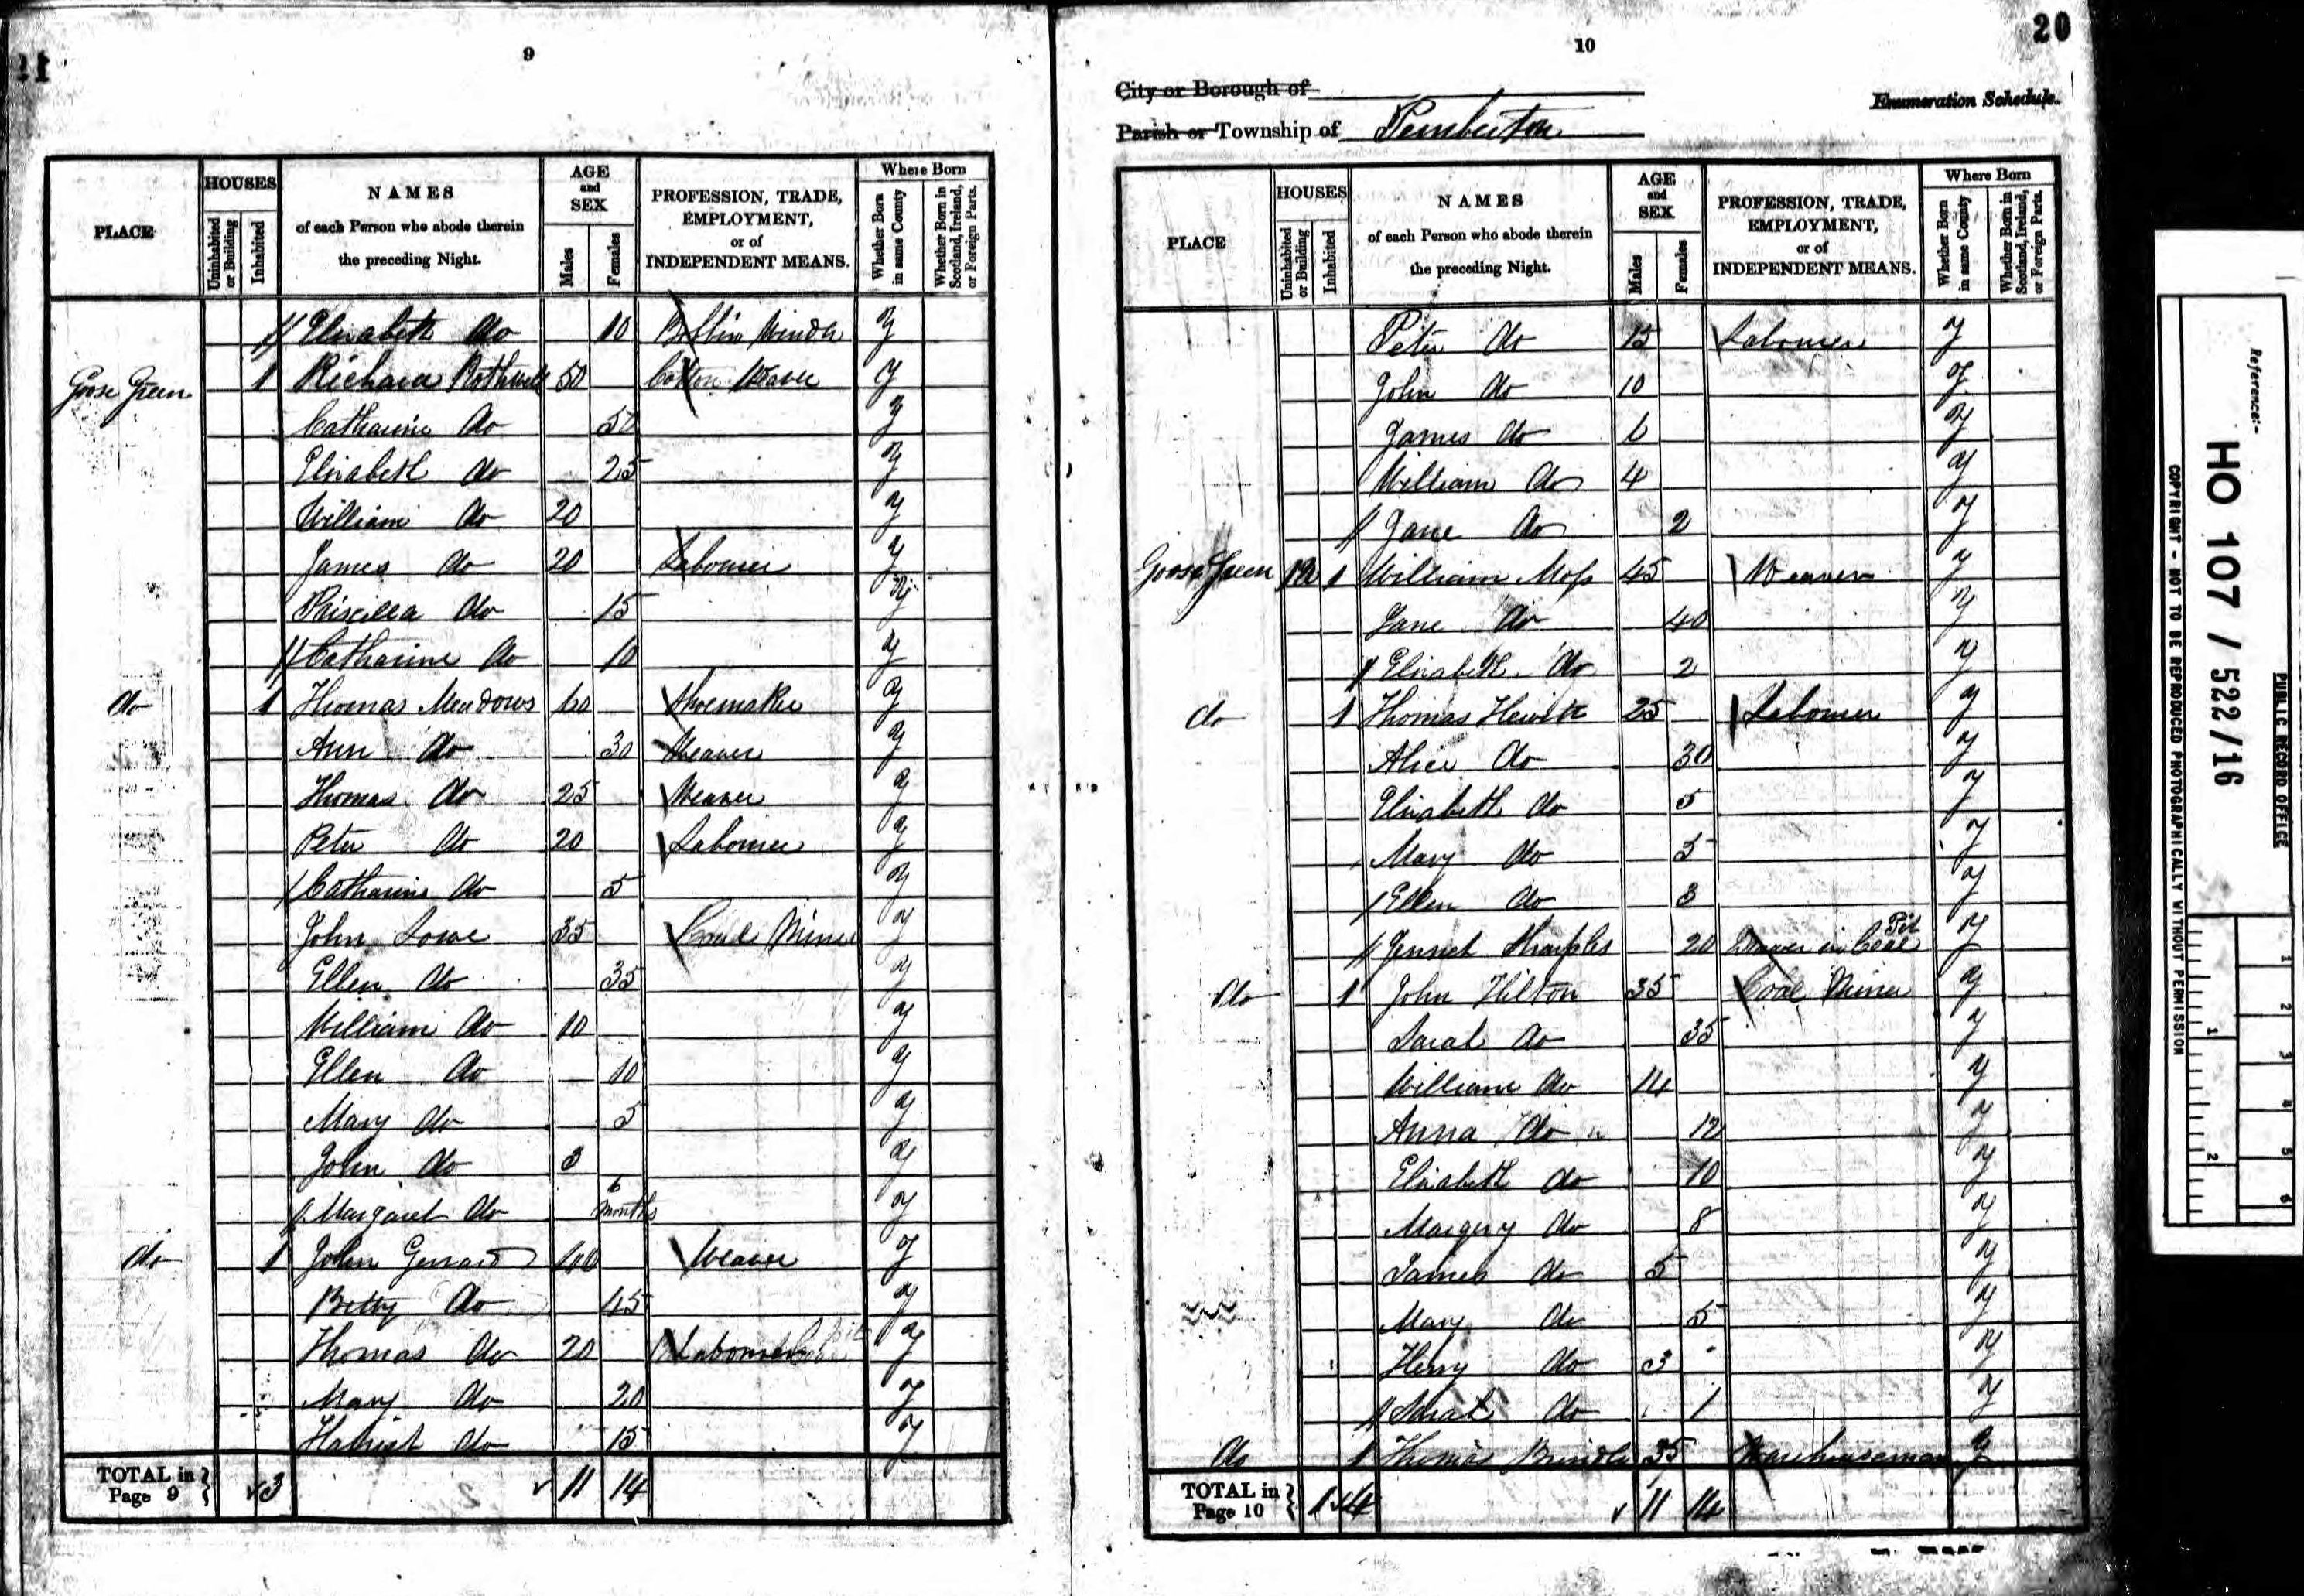 21
9
PLACE
HOUSES
Uninhabited or Building
Inhabited
NAMES
of each Person who abode therein
the preceding Night.
AGE
and
SEX
Males
Females
PROFESSION, TRADE,
EMPLOYMENT,
or of
INDEPENDENT MEANS.
Where Born
Whether Born in same County
Whether Born in Scotland, Ireland, or Foreign Parts.
Elizabeth do 10 Bobbin Winder y
Goose Green 1 Richard Rothwell 50 Cotton Weaver y
Catharine do 50 y
Elizabeth do 25 y
William do 20 y
James do 20 Labourer y
Priscilla do 15 y
Catharine do 10 y
do 1 Thomas Meadows 60 Shoemaker y
Ann do 30 Weaver y
Thomas do 25 Weaver y
Peter do 20 Labourer y
Catharine do 5 y
John Lowe 35 Coal Miner y
Ellen do 35 y
William do 10 y
Ellen do 10 y
Mary do 5 y
John do 3 y
Margaret do 6 months y
do 1 John Gerrard Weaver y
Betty do 45 y
Thomas do 20 Labourer y
Mary do 20 y
Harriet do 15 y
TOTAL in Page 9 3 11 14
20
10
City or Borough of
Enumeration Schedule.
Parish or Township of Pemberton
PLACE
HOUSES
Uninhabited or Building
Inhabited
NAMES
of each Person who abode therein
the preceding Night.
AGE
and
SEX
Males
Females
PROFESSION, TRADE,
EMPLOYMENT,
or of
INDEPENDENT MEANS.
Where Born
Whether Born in same County
Whether Born in Scotland, Ireland, or Foreign Parts.
Peter do 15 Labourer y
John do 10 y
James do 6 y
William do 4 y
Jane do 2 y
Goose Green 1 William Moss 45 Weaver y
Jane do 40 y
Elizabeth do 2 y
do 1 Thomas Hewitt 25 Labourer y
Alice do 30 y
Elizabeth do 5 y
Mary do 5 y
Ellen do 3 y
Jennet Sharples 20 Drawer in Coal Pit y
do 1 John Hilton 35 Coal Miner y
Sarah do 35 y
William do 14 y
Anna do 12 y
Elizabeth do 10 y
Margery do 8 y
James do 5 y
Mary do 5 y
Henry do 3 y
Sarah do 1 y
do 1 Thomas Brindle 35 Warehouseman y
TOTAL in Page 10 1 4 11 14
Reference:-
HO 107 / 522/16
PUBLIC RECORD OFFICE
COPYRIGHT - NOT TO BE REPRODUCED PHOTOGRAPHICALLY WITHOUT PERMISSION
1 2
1 2 3 4 5 6